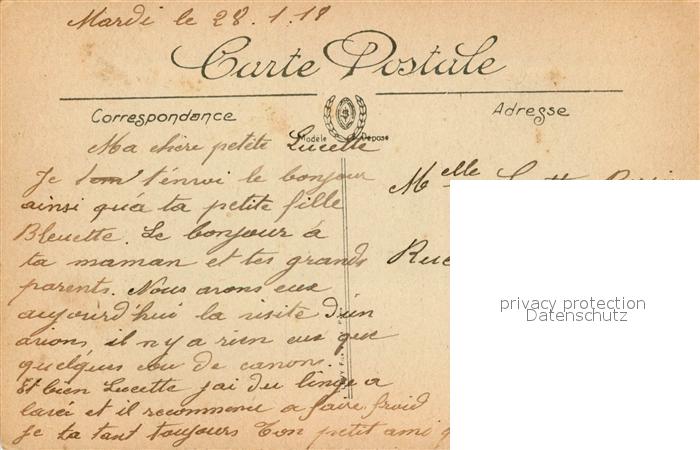 Mardi le 28.1.18
Carte Postale
Correspondance
Adresse
Modèle Déposé
Ma chère petite Lucette
Je t'envoi le bonjour
ainsi qu'a ta petite fille
Bleuette. Le bonjour à
ta maman et tes grands
parents. Nous avons eue
aujourd'hui la visite d'un
avions il n y a rien eue que
quelques cou de canons.
Et bien Lucette j'ai du linge a
lavei et il recommence a faire froid
Je ta tant toujours Ton petit ami
Melle
Rue
privacy protection
Datenschutz